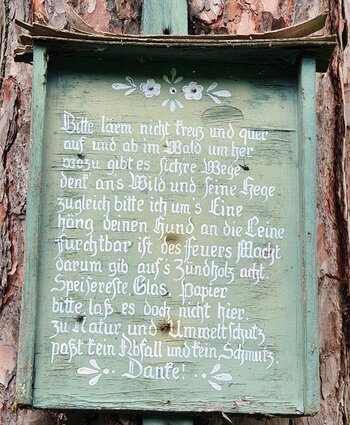 Bitte lärm nicht kreuz und quer
auf und ab im Wald umher
wozu gibt es sich're Wege
denk' an's Wild und seine Hege
zugleich bitte ich um's Eine
häng deinen Hund an die Leine
furchtbar ist des Feuers Macht
darum gib auf's Zündholz acht
Speisereste, Glas, Papier
bitte, laß es doch nicht hier.
zu Natur, und Umweltschutz
paßt kein Abfall und kein Schmutz
Danke!